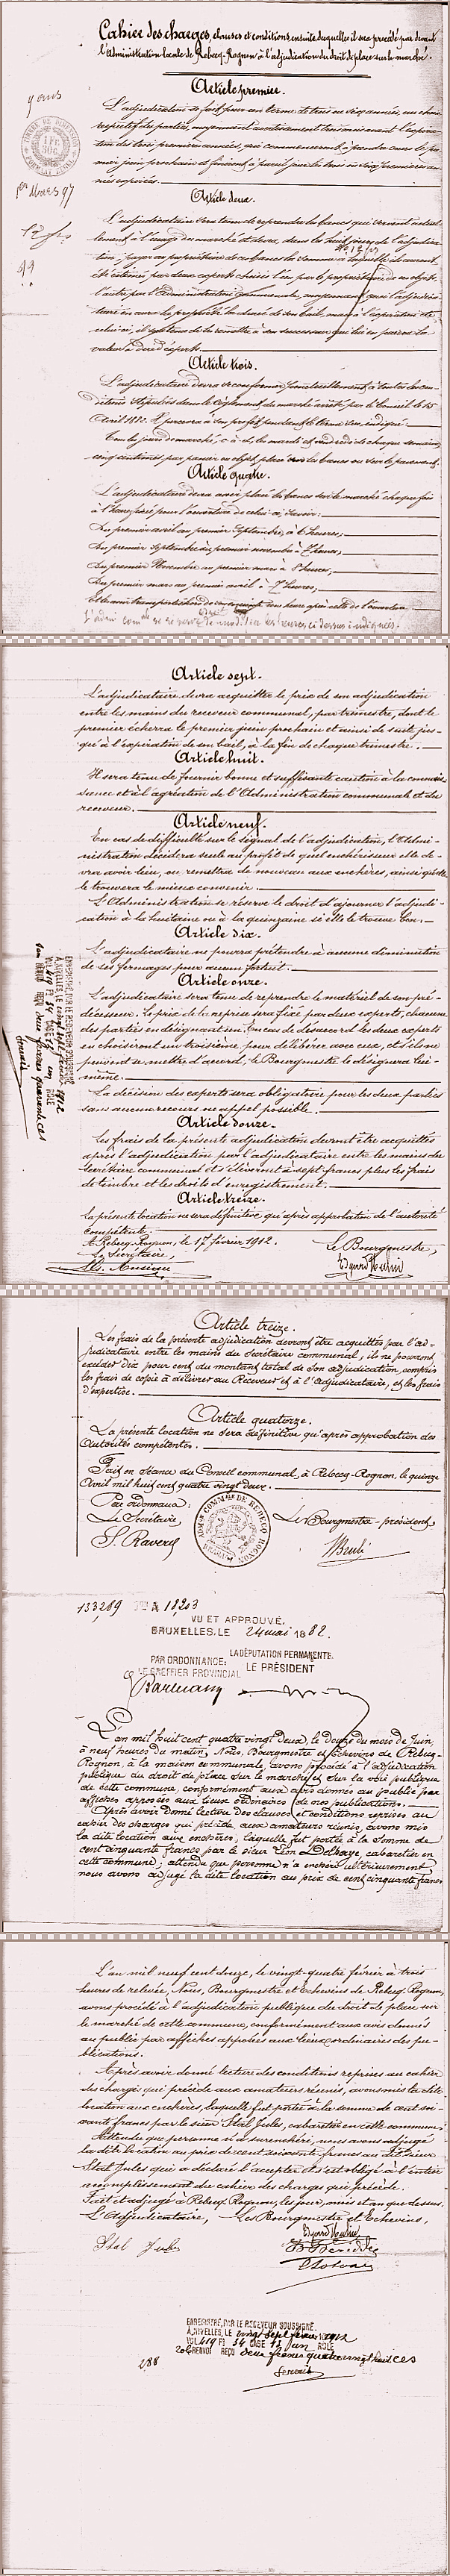 Cahier des charges, clauses et conditions ensuite duquel il sera procédé par devant
l'Administration locale de Rebecq-Rognon à l'adjudication du droit de place sur le marché.
Article premier.
L'adjudication se fait pour un terme de trois ou six années, au choix
respectif des parties, moyennant avertissement trois mois avant l'expira-
tion des trois premières années, qui commenceront à prendre cours le pre-
mier juin prochain et finiront à pareil jour les trois ou six premières an-
nées expirées.
Article deux.
L'adjudicataire sera tenu de reprendre les bancs qui servent actuel-
lement à l'usage du marché et devra, dans les huit jours de l'adjudica-
tion, payer au propriétaire de ces bancs la somme
été estimés par deux experts choisis l'un par le propriétaire de ces objets,
l'autre par l'Administration communale, moyennant quoi l'adjudica-
taire en aura la propriété la durée de son bail, mais à l'expiration de
celui-ci, il sera tenu de les remettre à son successeur qui lui en paiera la
valeur à dire d'experts.
Article trois.
L'adjudicataire devra se conformer ponctuellement à toutes les con-
ditions stipulées dans le règlement du marché arrêté par le Conseil le 15
Avril 1882. Il percevra à son profit pendant le terme sus-indiqué.
Tous les jours de marché, c. à d. les mardi et vendredi de chaque semaine,
cinq centimes par panier ou objet placé sur les bancs ou sur le pavement.
Article quatre.
L'adjudicataire devra avoir placé les bancs sur le marché chaque fois
à l'heure fixée pour l'ouverture de celui-ci, savoir:
Du premier avril au premier Septembre, à 6 heures,
Du premier septembre au premier novembre à 7 heures,
Du premier Novembre au premier mars à 8 heures,
Du premier mars au premier avril à 7 heures,
Article sept.
L'adjudicataire devra acquitter le prix de son adjudication
entre les mains du receveur communal, par trimestre, dont le
premier écherra le premier juin prochain et ainsi de suite jus-
qu'à l'expiration de son bail, à la fin de chaque trimestre.
Article huit.
Il sera tenu de fournir bonne et suffisante caution à la connais-
sance et à l'agréation de l'Administration communale et du
receveur.
Article neuf.
En cas de difficulté sur le signal de l'adjudication, l'Admi-
nistration décidera seule au profit de quel enchérisseur elle de-
vra avoir lieu, ou remettra de nouveau aux enchères, ainsi qu'elle
le trouvera le mieux convenir.
L'Administration se réserve le droit d'ajourner l'adjudi-
cation à la huitaine ou à la quinzaine si elle le trouve bon.
Article dix.
L'adjudicataire ne pourra prétendre à aucune diminution
de ses fermages pour aucun cas fortuit.
Article onze.
L'adjudicataire sera tenu de reprendre le matériel de son pré-
décesseur. Le prix de la reprise sera fixé par deux experts, chacune
des parties en désignant un. En cas de désaccord les deux experts
en choisiront un troisième pour délibérer avec eux, et s'ils ne
peuvent se mettre d'accord, le Bourgmestre le désignera lui-
même.
La décision des experts sera obligatoire pour les deux parties
sans aucun recours ne appel possible.
Article douze.
Les frais de la présente adjudication devront être acquittés
après l'adjudication par l'adjudicataire entre les mains du
Secrétaire communal et s'élèveront à sept francs plus les frais
de timbre et les droits d'enregistrement.
Article treize.
La présente location ne sera définitive qu'après approbation de l'autorité
compétente.
A Rebecq-Rognon, le 17 février 1912.
Le Secrétaire,
Le Bourgmestre,
ENREGISTRÉ, PAR LE RECEVEUR SOUSSIGNÉ
A NIVELLES, LE vingt sept février 1912
VOL 419 Fº 34 CASE 13 un ROLE
san RENVOI REÇU deux francs quarante ces
Servais
Article treize.
Les frais de la présente adjudication devront être acquittés par l'ad-
judicataire entre les mains du Secrétaire communal, ils ne pourront
excéder dix pour cent du montant total de son adjudication, compris
les frais de copie à délivrer au Receveur et à l'Adjudicataire, et les frais
d'expertise.
Article quatorze.
La présente location ne sera définitive qu'après approbation des
Autorités compétentes.
Fait en séance du Conseil communal, à Rebecq-Rognon, le quinze
Avril mil huit cent quatre vingt deux.
Par ordonnance:
Le Secrétaire,
Le Bourgmestre-président,
133,289
18,203
VU ET APPROUVÉ.
BRUXELLES, LE 24 mai 1882.
PAR ORDONNANCE:
LE GREFFIER PROVINCIAL
LA DÉPUTATION PERMANENTE.
LE PRÉSIDENT
L'an mil huit cent quatre vingt deux, le douze du mois de Juin,
à neuf heures du matin, Nous, Bourgmestre et Echevins de Rebecq-
Rognon, à la maison communale, avons procédé à l'adjudication
publique du droit de place sur le marché et sur la voie publique
de cette commune, conformément aux avis donnés au public par
affiches apposées aux lieux ordinaires de nos publications.
Après avoir donné lecture des clauses et conditions reprises au
cahier des charges qui précède aux amateurs réunis, avons mis
la dite location aux enchères, laquelle fut portée à la somme de
cent cinquante francs par le sieur Léon Delhaye, cabaretier en
cette commune; attendu que personne n'a enchéri ultérieurement,
nous avons adjugé la dite location au prix de cent cinquante francs
L'an mil neuf cent douze, le vingt-quatre février à trois
heures de relevée, Nous, Bourgmestre et Echevins de Rebecq-Rognon,
avons procédé à l'adjudication publique du droit de place sur
le marché de cette commune, conformément aux avis donnés
au public par affiches apposées aux lieux ordinaires des pu-
blications.
Après avoir donné lecture des conditions reprises au cahier
des charges qui précède aux amateurs réunis, avons mis la dite
location aux enchères, laquelle fut portée à la somme de cent soi-
xante francs par le sieur Stal Jules, cabaretier en cette commune.
Attendu que personne n'a surenchéri, nous avons adjugé
la dite location au prix de cent soixante francs au dit sieur
Stal Jules qui a déclaré l'accepter et s'est obligé à l'entier
accomplissement du cahier des charges qui précède.
Fait et adjugé à Rebecq-Rognon, les jour, mois et an que dessus.
L'Adjudicataire,
Les Bourgmestre et Echevins,
Stal Jules
ENREGISTRÉ, PAR LE RECEVEUR SOUSSIGNÉ
A NIVELLES, LE vingt sept février 1912
VOL 419 Fº 34 CASE 13 un ROLE
RENVOI REÇU deux francs quatre vingt huit ces
Servais
288